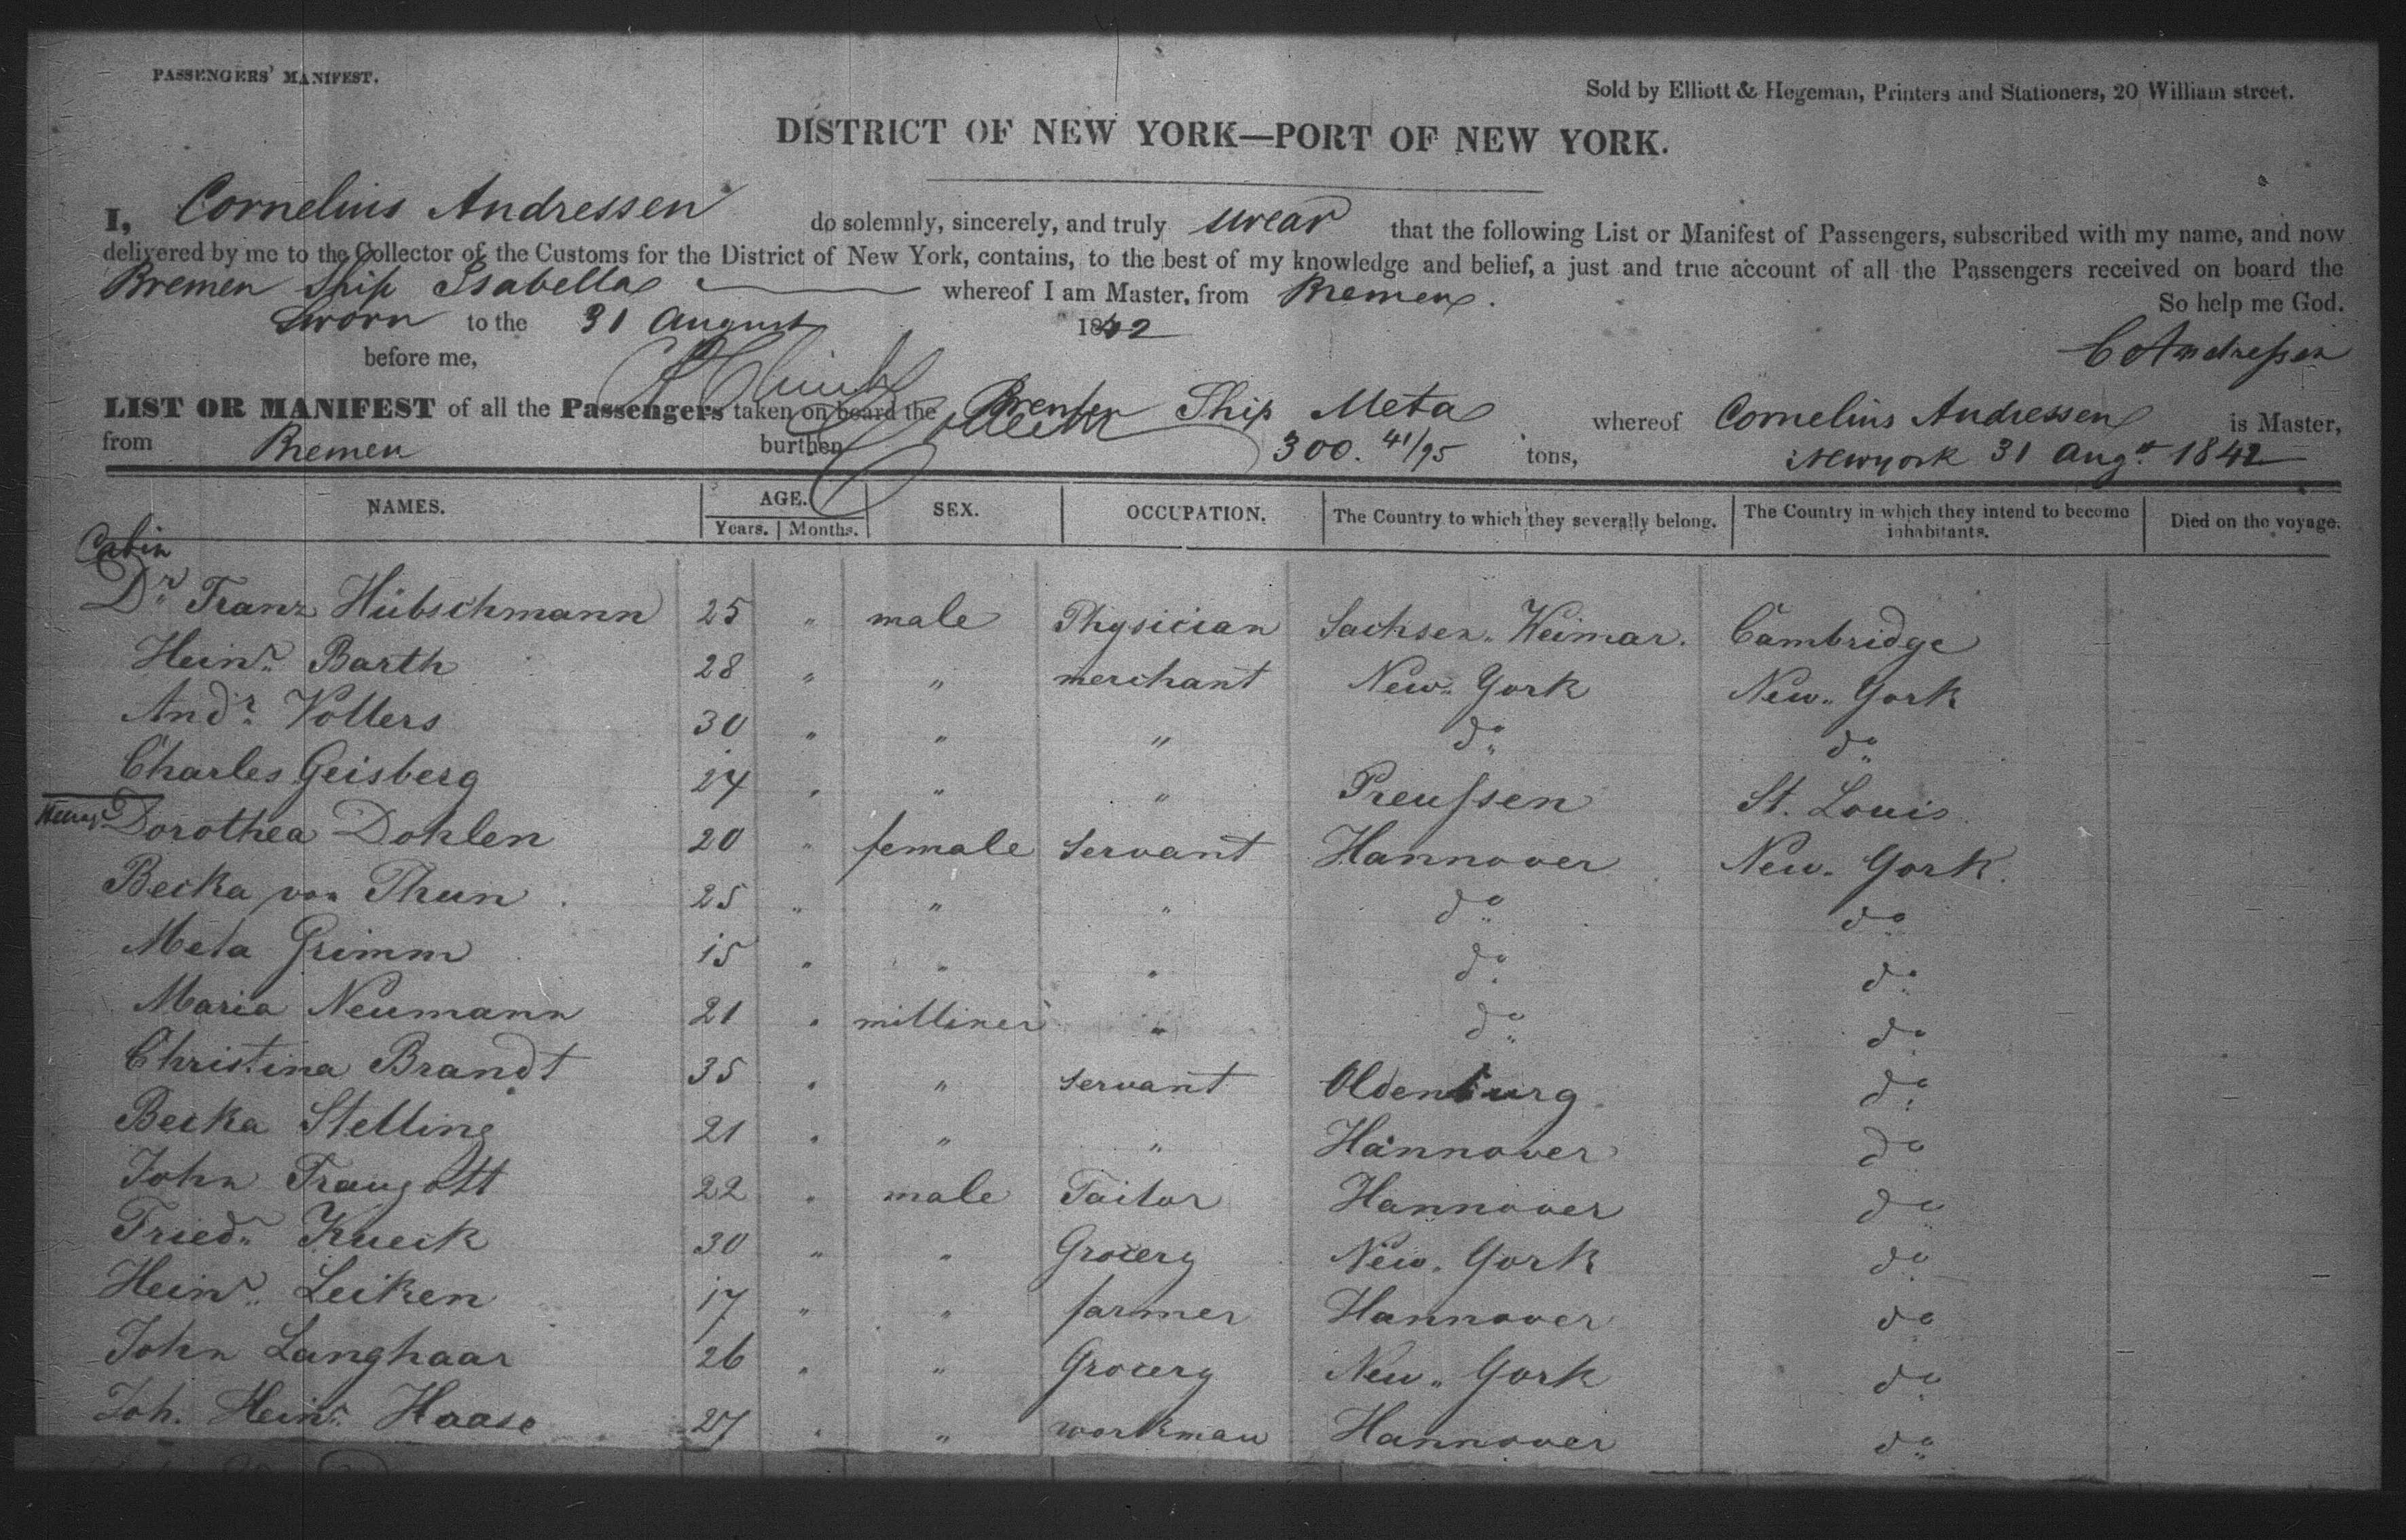 PASSENGERS' MANIFEST.
Sold by Elliott & Hegeman, Printers and Stationers, 20 William street.
DISTRICT OF NEW YORK—PORT OF NEW YORK.
I, Cornelius Andressen do solemnly, sincerely, and truly swear that the following List or Manifest of Passengers, subscribed with my name, and now
delivered by me to the Collector of the Customs for the District of New York, contains, to the best of my knowledge and belief, a just and true account of all the Passengers received on board the
Bremen Ship Isabella whereof I am Master, from Bremen.
So help me God.
Sworn to the 31 August 1842
before me,
C Andreſsen
LIST OR MANIFEST of all the Passengers taken on board the Bremer Ship Meta whereof Cornelius Andressen is Master,
from Bremen burthen 300. 41/95 tons, Newyork 31 Augt 1842
NAMES. AGE. SEX. OCCUPATION. The Country to which they severally belong. The Country in which they intend to become inhabitants. Died on the voyage.
Years. Months.
Cabin
Dr Franz Hübschmann 25 " male Physician Sachsen-Weimar. Cambridge
Heinr. Barth 28 " " merchant New-York New-York
Andr. Vollers 30 " " " do do
Charles Geisberg 24 " " " Preuſsen St. Louis
Dorothea Dohlen 20 " female servant Hannover New-York.
Becka von Thun 25 " " " do do
Meta Grimm 15 " " " do do
Maria Neumann 21 " milliner " do do
Christina Brandt 35 " " servant Oldenburg do
Becka Stelling 21 " " " Hannover do
John Traugott 22 " male Tailor Hannover do
Friedr. Kueck 30 " " Grocery New-York do
Heinr. Leiken 17 " " farmer Hannover do
John Langhaar 26 " " Grocery New-York do
Joh. Heinr. Haase 27 " " workman Hannover do